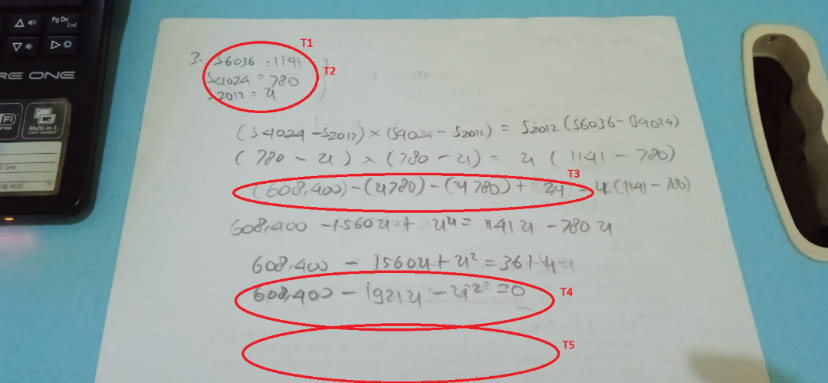 Pg Dn
End
RE ONE
WiFi
Multi-in-1
T1
3. S6036 = 1141
T2
S4024 = 780
S2012 = u
(S4024 - S2012) × (S4024 - S2012) = S2012 (S6036 - S4024)
(780 - u) × (780 - u) = u (1141 - 780)
T3
(608,400) - (u780) - (u780) + 2u = u (1141 - 780)
608,400 - 1560u + u⁴ = 1141 u - 780 u
608,400 - 1560u + u² = 361
T4
608,400 - 1921u - u² = 0
T5